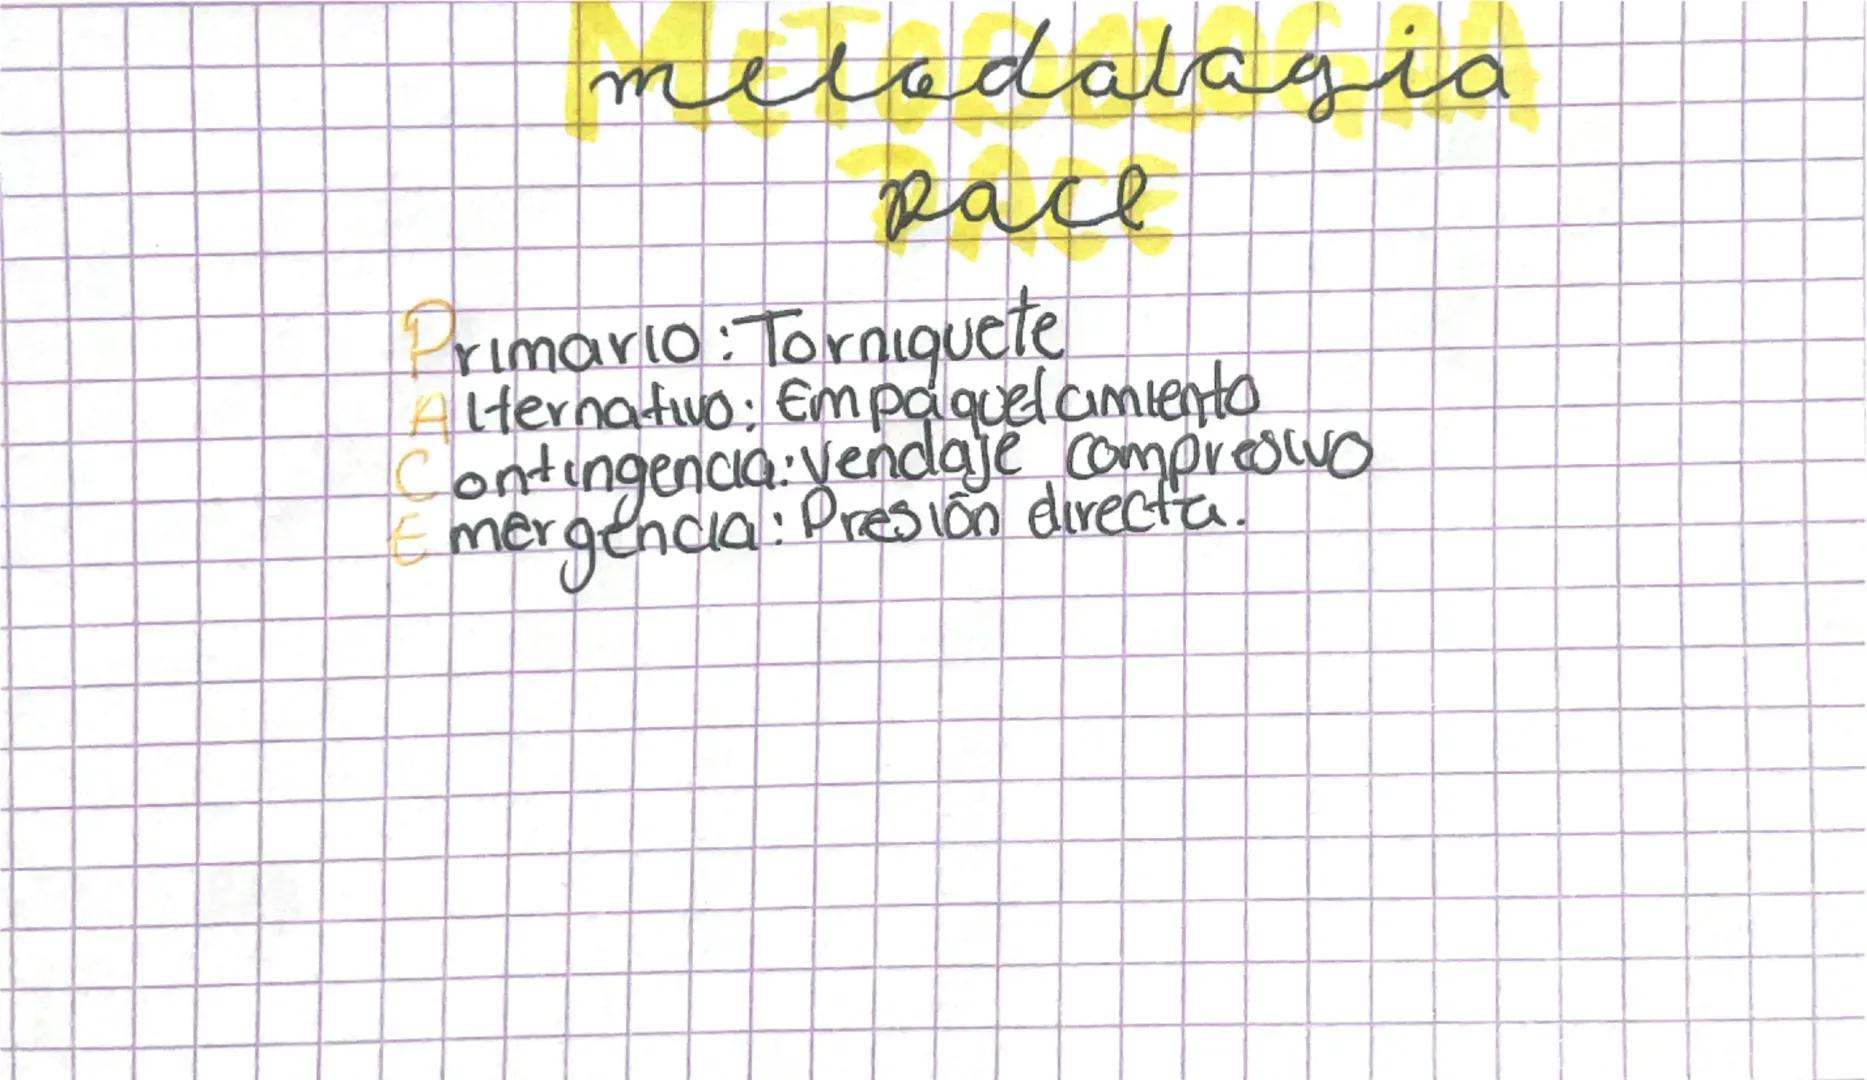 METODOLOGIA
metodologia
PACE
pace
Primario: Torniquete
Alternativo: Empaquetamiento
Contingencia: Vendaje compresivo
Emergencia: Presión directa.